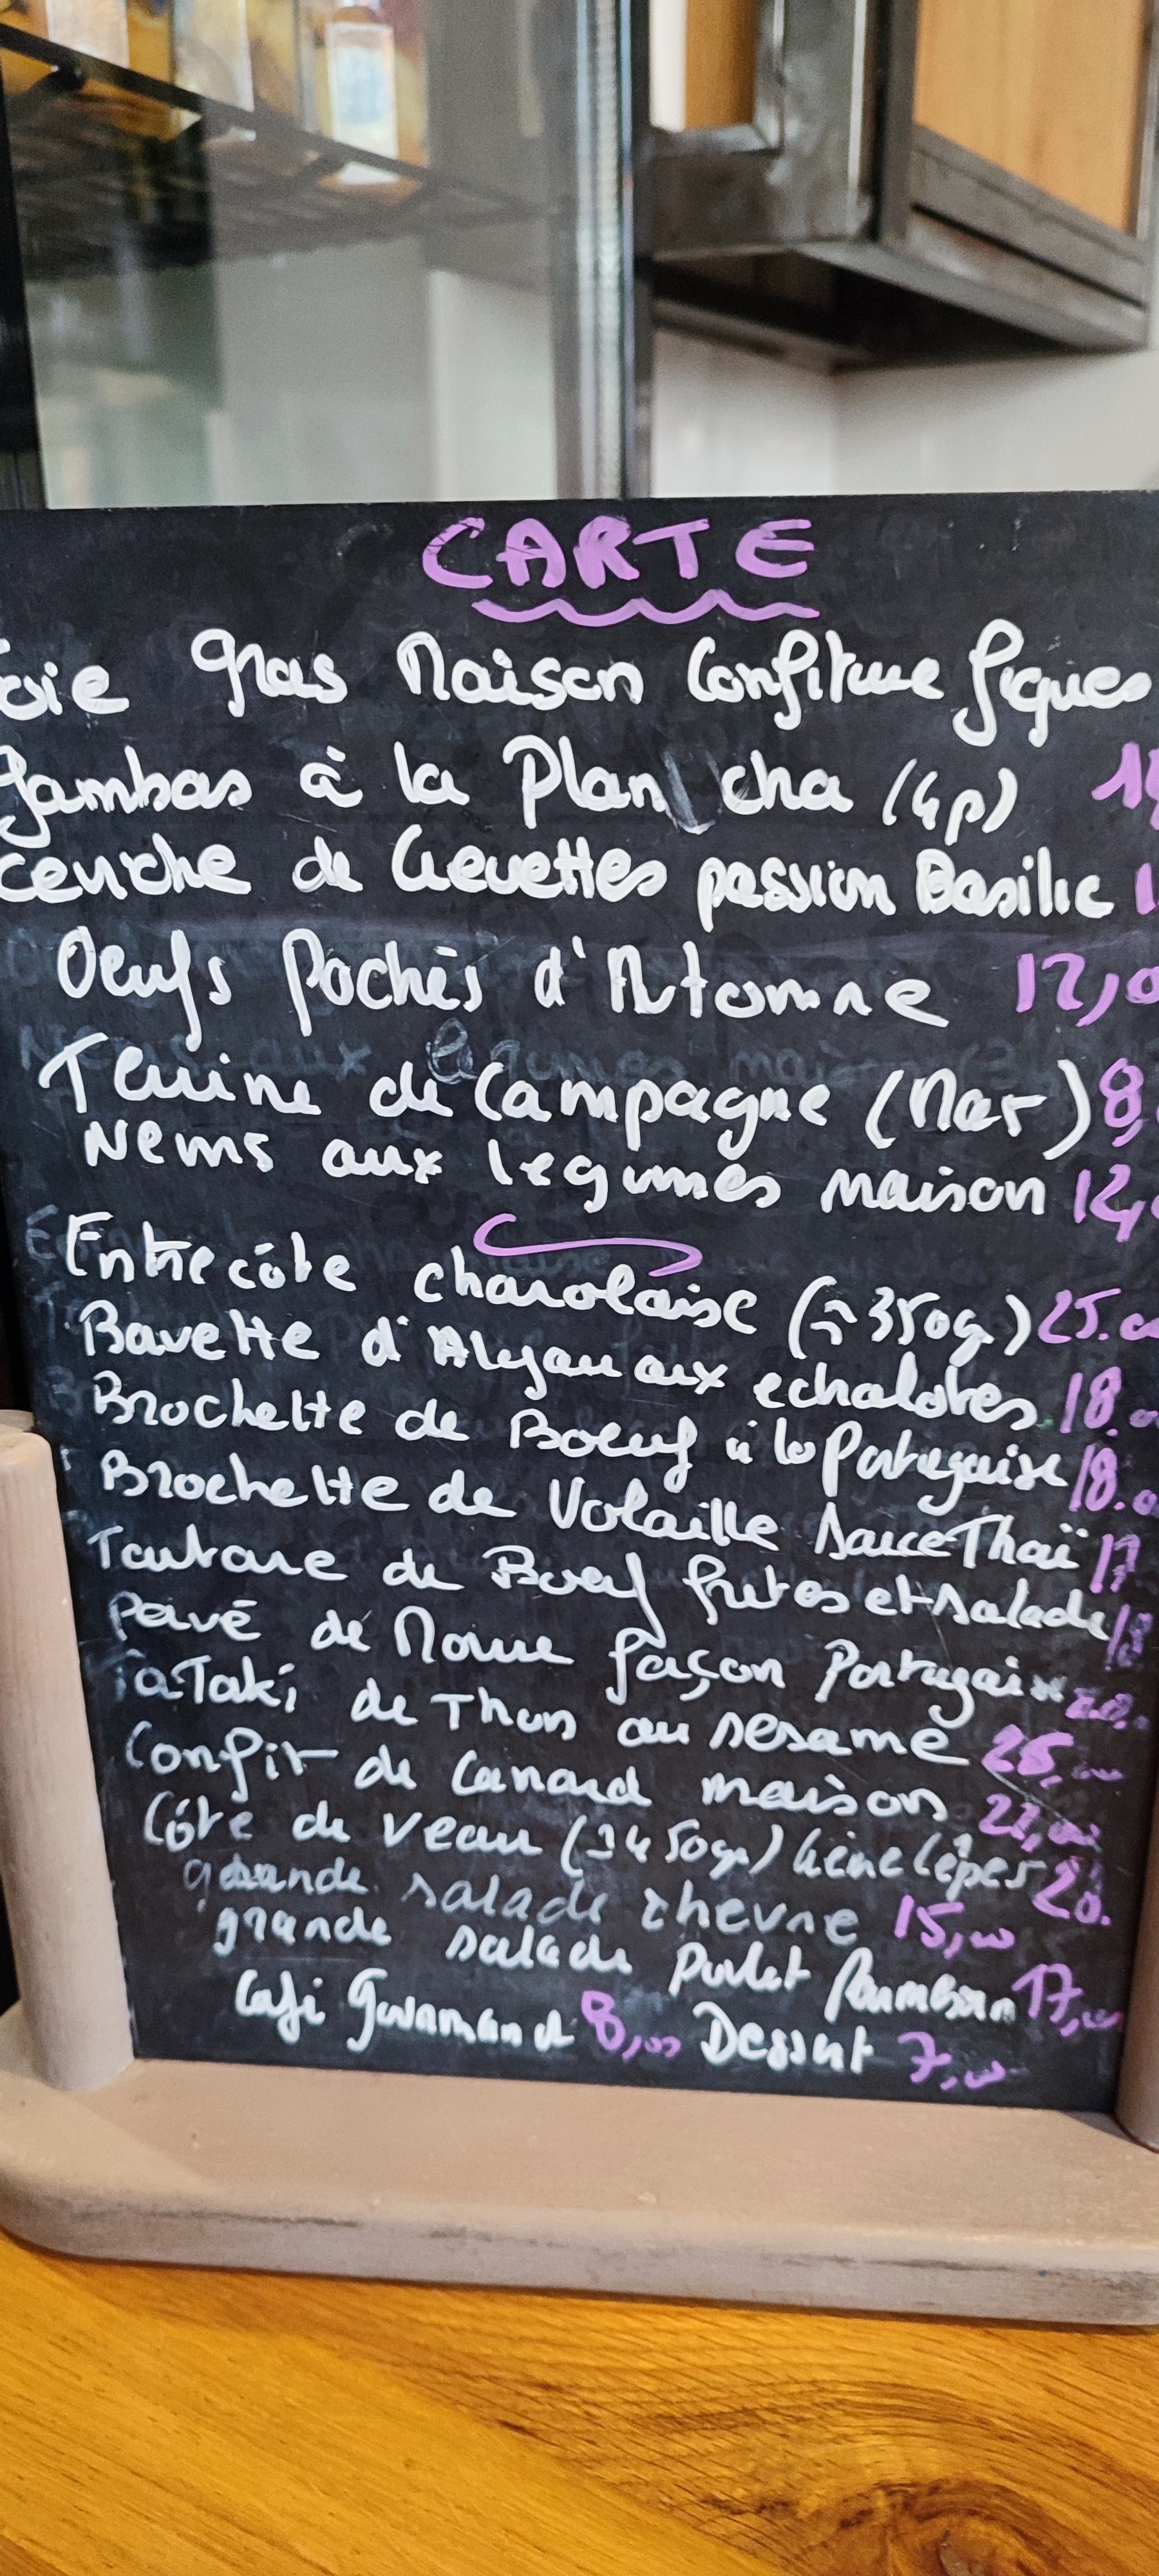 CARTE
Foie gras Maison Confiture figues
Gambas à la Plan cha (4p)
Ceviche de Crevettes passion Basilic
Oeufs Pochés d'Automne 12,0
Terrine de Campagne (Mar) 8,
Nems aux legumes maison 12,
Entrecôte charolaise (≈350g) 25.00
Bavette d'Aloyau aux echalotes 18.0
Brochette de Boeuf à la Portugaise 18.0
Brochette de Volaille sauce Thaï 17
Tartare de Boeuf frites et salade 18
Pavé de Morue façon Portugaise
TaTaki de Thon au sesame 25,00
Confit de Canard maison 22,00
Côte de veau (≈450gr) Crème Cèpes 28.
grande salade chevre 15,00
grande salade Poulet Parmesan 17,00
Café Gourmand 8,00 Dessert 7,00